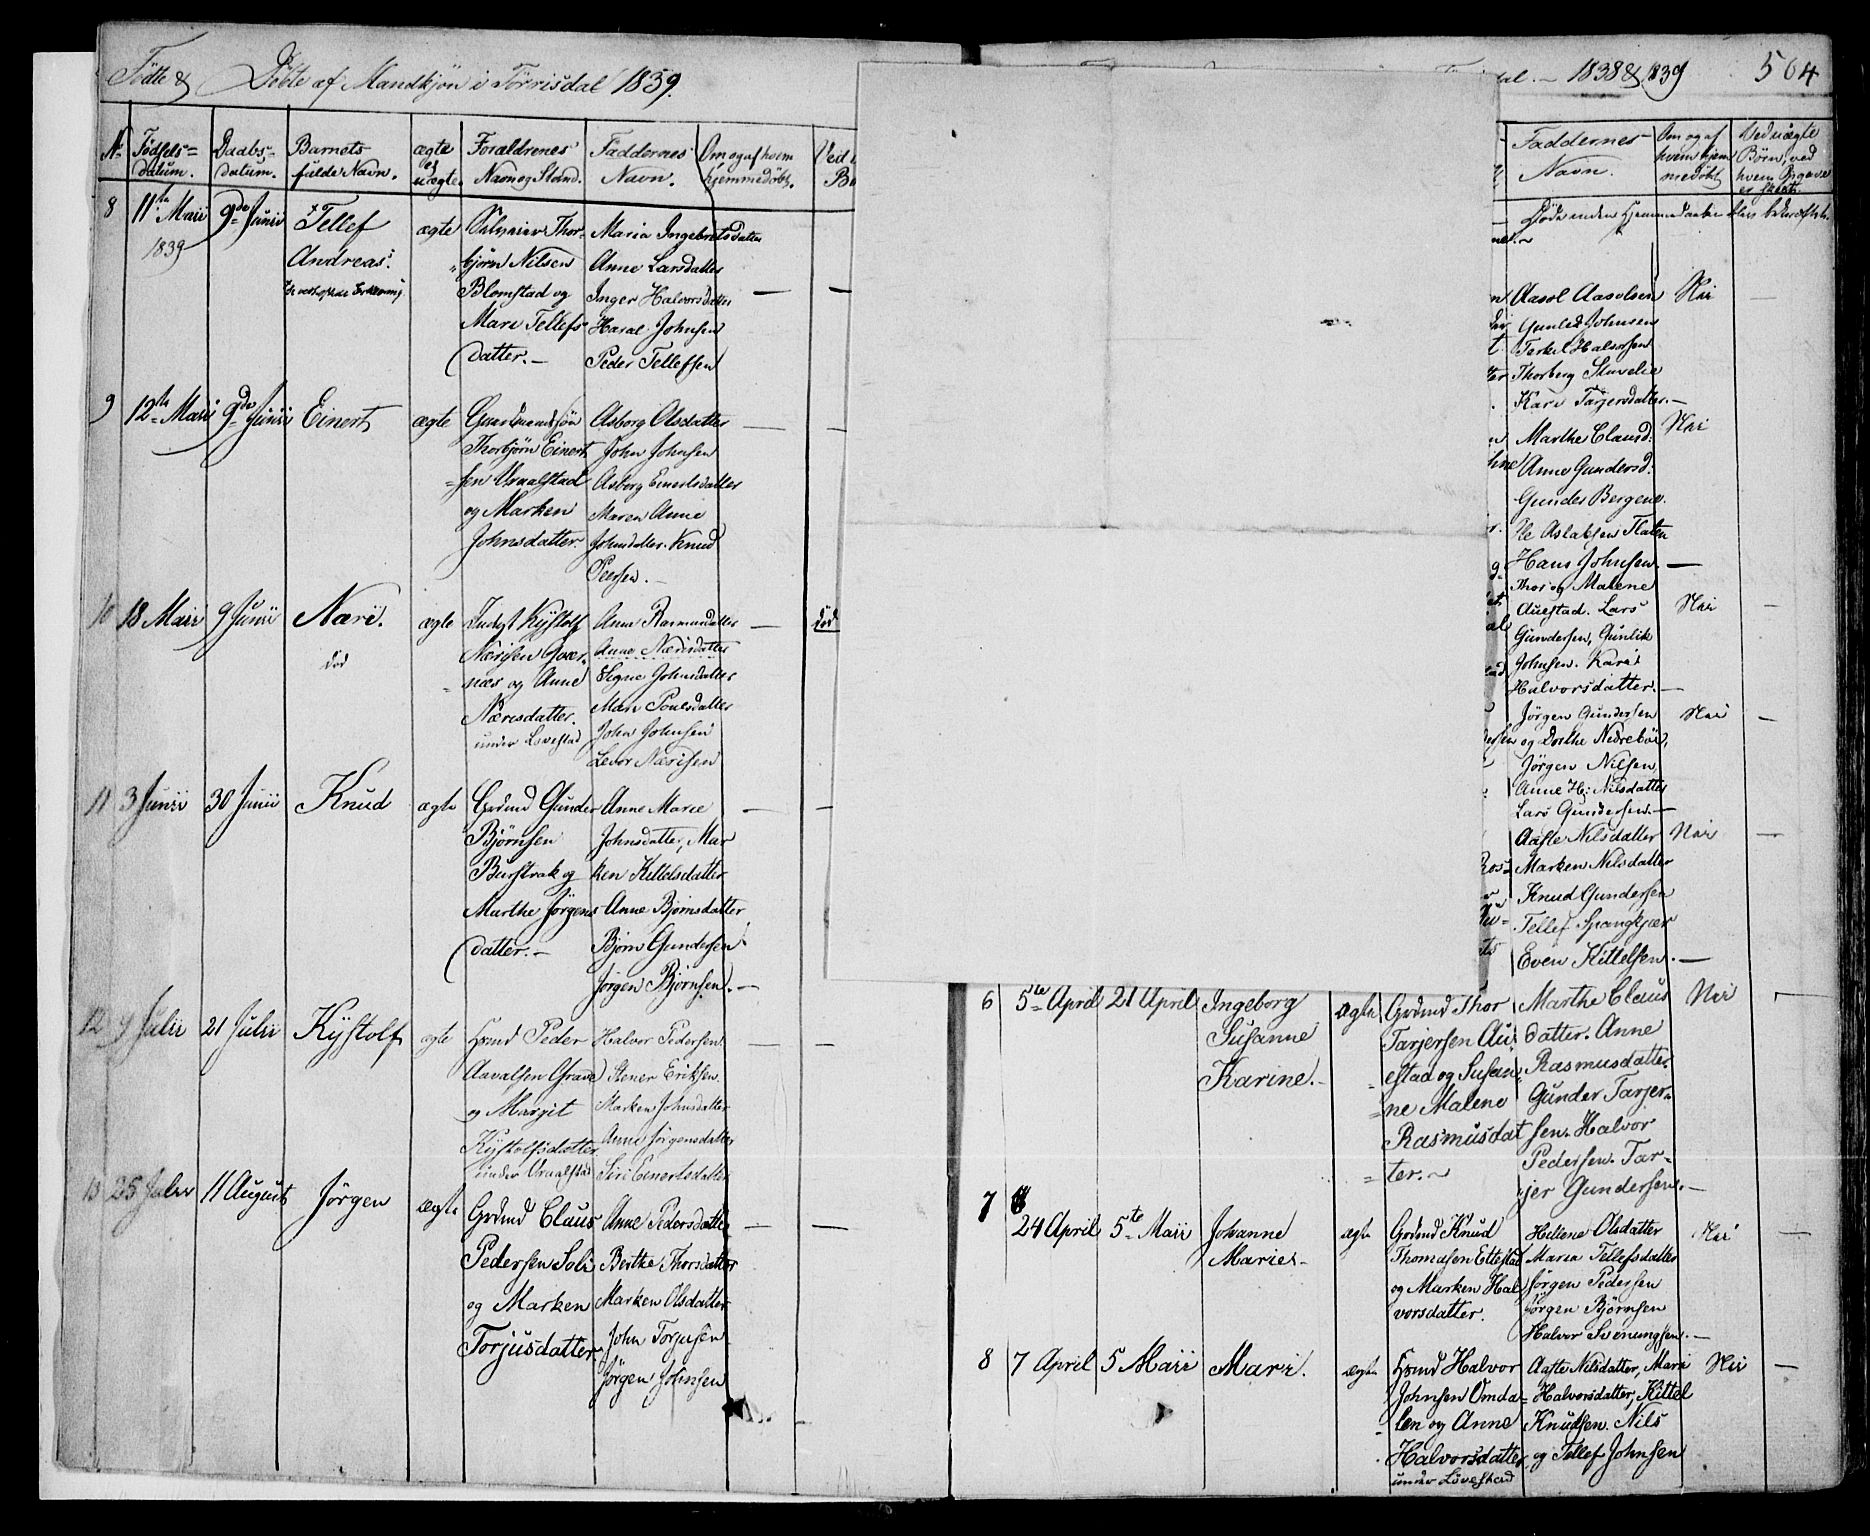 Födte & Döbte af Mandkjön i Törrisdal 1839.
No
Födsels=
datum.
Daabs-
datum.
Barnets
fulde Navn.
ægte
el
uægte.
Foraldrenes
Navn og Stand.
Faddernes
Navn.
Om og af hvem
hjemmedöbt.
8
11te Maii
1839
9de Junii
Tellef
Andreas.
ægte
Thor-
björn Nilsen
Blomstad og
Mari Tellefs
datter.-
Maria Ingebretsdatter
Anne Larsdatter
Inger Halvorsdatter
Haral Johnsen
Peder Tellefsen
9
12te Maii
9de Junii
Einert
ægte
Thorbjörn Einert
sen Vraalstad
og Marken
Johnsdatter.
Asborg Olsdatter
John Johnsen
Asborg Einertsdatter
Maren Anne
Johnsdatter. Knud
Peersen.-
10
18 Maii
9 Junii
Næri.
död
ægte
Kystolf
Nærisen Qvær-
næs og Anne
Nærisdatter.
under Lövestad
Anne Rasmusdatter
Anne Nærisdatter
Signe Johnsdatter
Mari Poulsdatter
John Johnsen
Levor Nærisen
död
11
3 Junii
30 Junii
Knud
ægte
Grdmd Gunder
Björnsen
Burstrak og
Marthe Jörgens
datter.-
Anne Marie
Johnsdatter, Mar
ken Kittelsdatter
Anne Björnsdatter
Björn Gundersen
Jörgen Björnsen.-
12
9 Julii
21 Julii
Kystolf
ægte
Hsmd Peder
Aavalsen Grave
og Margit
Kystolfsdatter
under Vraalstad
Halvor Pedersen
Stener Eriksen.
Marken Johnsdatter
Anne Jörgensdatter
Siri Einertsdatter
13
25 Julii
11 August
Jörgen
ægte
Grdmd Claus
Pedersen Soli
og Marken
Torjusdatter
Anne Pedersdatter
Berthe Thorsdatter
Marken Olsdatter
John Torjusen
Jörgen Johnsen
1838 & 1839
504
Faddernes
Navn.
Om og af
hvem hjem
medöbt
Ved uægte
Börn, ved
hvem Opgave
er skeet.
Aasol Aasolsen
Gunled Johnsen
Terkel Halvorsen
Thorberg Stuvelie
Kari Tarjersdatter.-
Nei
Marthe Clausd:
Anne Gundersd:
Gunder Bergene.
Ole Aslaksen Flaten
Hans Johnsen.
Nei
Thor og Malene
Auestad. Lars
Gundersen, Gunlik
Johnsen. Kari
Halvorsdatter.-
Nei
Jörgen Gundersen
og Dorthe Nedreböe,
Jörgen Nilsen,
Anne H: Nilsdatter
Lars Gundersen.-
Nei
Aaste Nilsdatter
Marken Nilsdatter
Knud Gundersen
Tellef Spangkjær
Even Kittelsen.-
Nei
6
5te April
21 April
Ingeborg
Susanne
Karine.-
ægte
Grdmd Thor
Tarjersen Au-
estad og Susan-
ne Malene
Rasmusdat
ter.-
Marthe Claus
datter. Anne
Rasmusdatter
Gunder Tarjer-
sen. Halvor
Pedersen. Tar-
jer Gundersen.-
Nei
7
24 April
5te Maii
Johanne
Marie.-
ægte
Grdmd Knud
Thomasen Ettestad
og Marken Hal
vorsdatter.
Hellene Olsdatter
Maria Tellefsdatter
Jörgen Pedersen
Jörgen Björnsen
Halvor Svenungsen.-
Nei
8
7 April
5 Maii
Mari.
ægte
Hsmd Halvor
Johnsen Omda-
len og Anne
Halvorsdatter
under Lövestad
Aaste Nilsdatter, Mari
Halvorsdatter, Kittel
Knudsen. Nils
og Tellef Johnsen
Nei